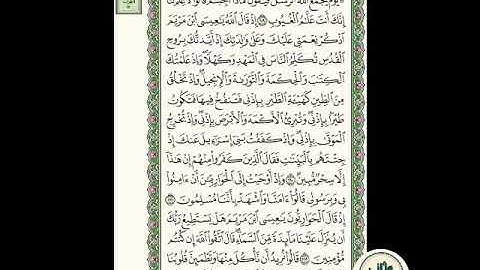 يَوْمَ يَجْمَعُ ٱللَّهُ ٱلرُّسُلَ فَيَقُولُ مَاذَآ أُجِبْتُمْ قَالُوا۟ لَا عِلْمَ لَنَآ
إِنَّكَ أَنتَ عَلَّـٰمُ ٱلْغُيُوبِ ١٠٩ إِذْ قَالَ ٱللَّهُ يَـٰعِيسَى ٱبْنَ مَرْيَمَ
ٱذْكُرْ نِعْمَتِى عَلَيْكَ وَعَلَىٰ وَٰلِدَتِكَ إِذْ أَيَّدتُّكَ بِرُوحِ
ٱلْقُدُسِ تُكَلِّمُ ٱلنَّاسَ فِى ٱلْمَهْدِ وَكَهْلًا وَإِذْ عَلَّمْتُكَ
ٱلْكِتَـٰبَ وَٱلْحِكْمَةَ وَٱلتَّوْرَىٰةَ وَٱلْإِنجِيلَ وَإِذْ تَخْلُقُ
مِنَ ٱلطِّينِ كَهَيْـَٔةِ ٱلطَّيْرِ بِإِذْنِى فَتَنفُخُ فِيهَا فَتَكُونُ
طَيْرًۢا بِإِذْنِى وَتُبْرِئُ ٱلْأَكْمَهَ وَٱلْأَبْرَصَ بِإِذْنِى وَإِذْ تُخْرِجُ
ٱلْمَوْتَىٰ بِإِذْنِى وَإِذْ كَفَفْتُ بَنِىٓ إِسْرَٰٓءِيلَ عَنكَ إِذْ
جِئْتَهُم بِٱلْبَيِّنَـٰتِ فَقَالَ ٱلَّذِينَ كَفَرُوا۟ مِنْهُمْ إِنْ هَـٰذَآ
إِلَّا سِحْرٌ مُّبِينٌ ١١٠ وَإِذْ أَوْحَيْتُ إِلَى ٱلْحَوَارِيِّـۧنَ أَنْ ءَامِنُوا۟
بِى وَبِرَسُولِى قَالُوٓا۟ ءَامَنَّا وَٱشْهَدْ بِأَنَّنَا مُسْلِمُونَ ١١١
إِذْ قَالَ ٱلْحَوَارِيُّونَ يَـٰعِيسَى ٱبْنَ مَرْيَمَ هَلْ يَسْتَطِيعُ رَبُّكَ
أَن يُنَزِّلَ عَلَيْنَا مَآئِدَةً مِّنَ ٱلسَّمَآءِ قَالَ ٱتَّقُوا۟ ٱللَّهَ إِن كُنتُم
مُّؤْمِنِينَ ١١٢ قَالُوا۟ نُرِيدُ أَن نَّأْكُلَ مِنْهَا وَتَطْمَئِنَّ قُلُوبُنَا